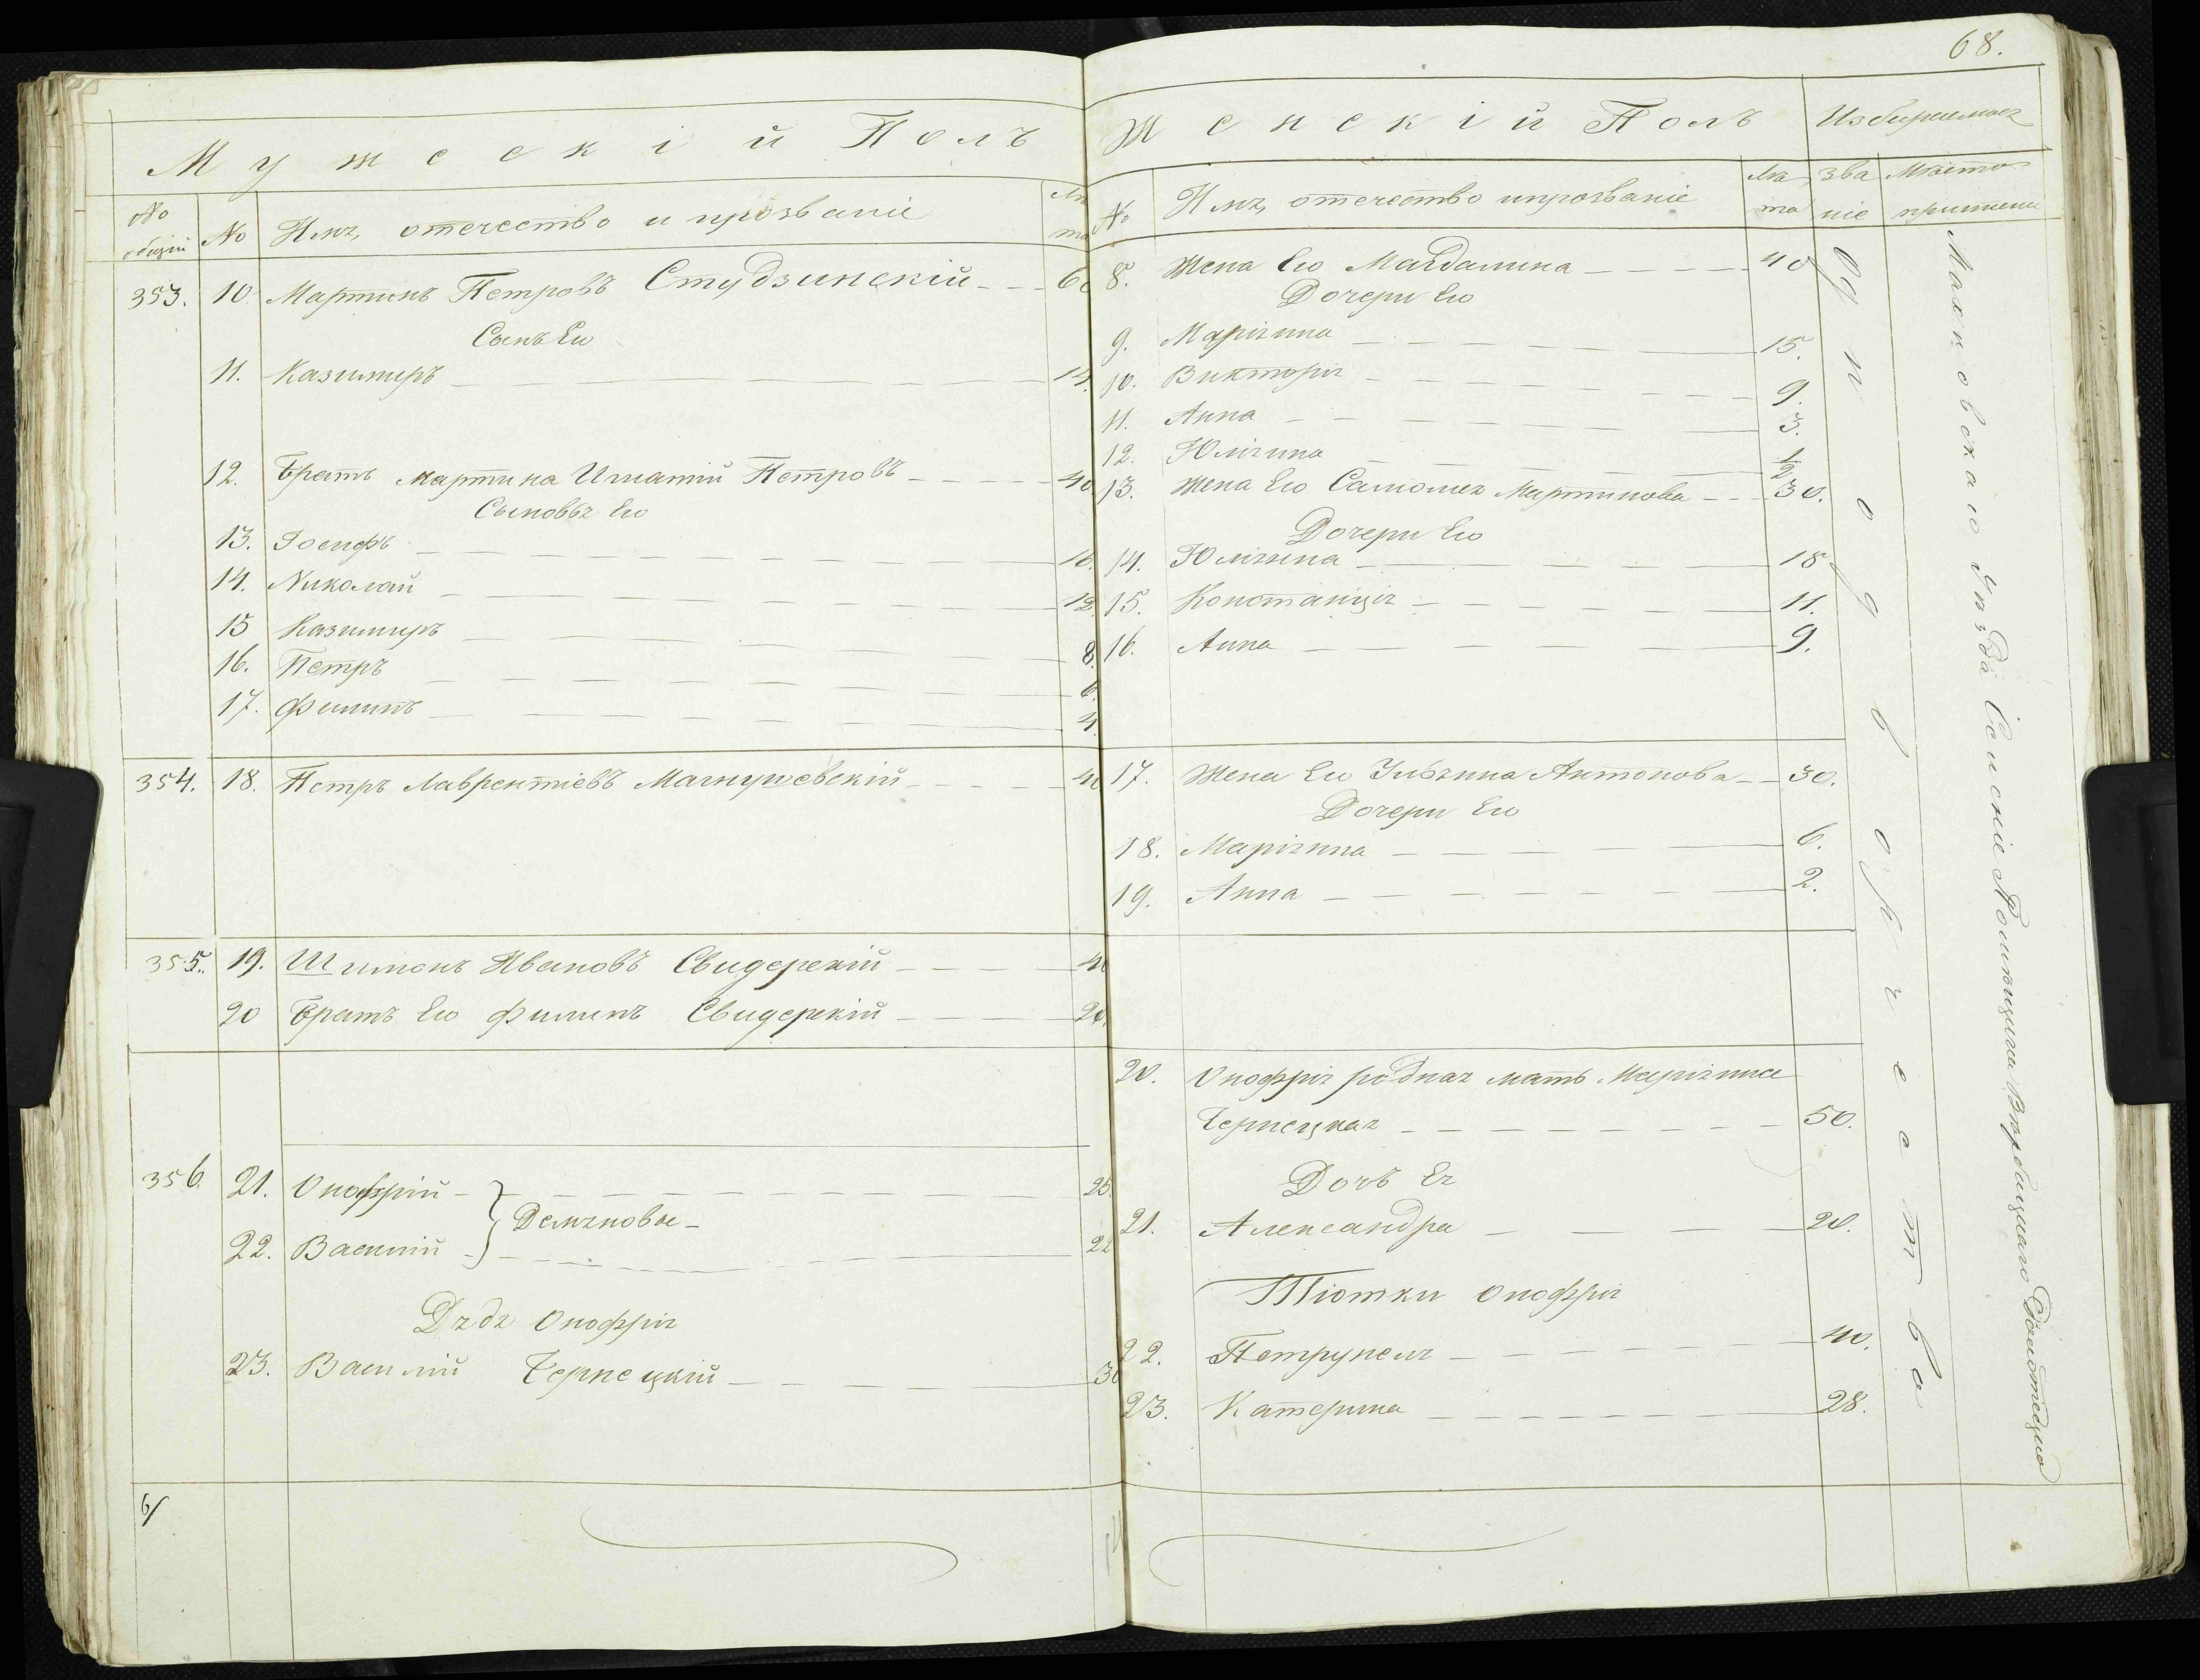 Мужескій Полъ
№ общій
№
Имя, отечество и прозваніе
Лѣта
353. 10. Мартинъ Петровъ Студзинскій 60
Сынъ Его
11. Казимиръ 14.
12. Братъ Мартина Игнатій Петровъ 40
Сыновья Его
13. Іосифъ 16.
14. Николай 12.
15 Казимиръ 8.
16. Петръ 6.
17. Филипъ 4.
354. 18. Петръ Лаврентіевъ Магнушевскій 40
355. 19. Шимонъ Ивановъ Свидерскій 40
20 Братъ Его Филипъ Свидерскій 20.
356. 21. Онофрій 25.
Демяновы
22. Василій 22
Дядя Онофрія
23. Василій Чернецкій 30
6/
68.
Женскій Полъ
Избираемая
№
Имя, отечество и прозваніе
Лѣта
званіе
Мѣсто
8. Жена Его Магдалина 40
Дочери Его
9. Маріянна 15.
10. Викторія 9.
11. Анна 3.
12. Юліянна 1/2
13. Жена Его Саломея Мартинова 30.
Дочери Его
14. Юліянна 18
15. Констанція 11.
16. Анна 9.
17. Жена Его Ульянна Антонова 30.
Дочери Его
18. Маріянна 6.
19. Анна 2.
20. Онофрія родная мать Маріянна
Чернецкая 50.
Дочь Ея
21. Александра 20.
Тіотки Онофрія
22. Петрунеля 40.
23. Катерина 28.
Однодворчество
Махновскаго Уѣзда Селеніе